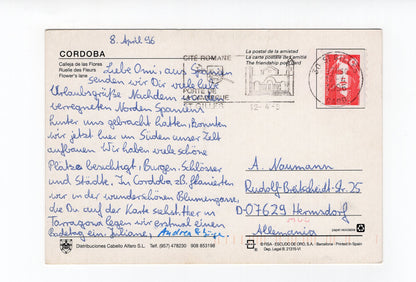 8. April 96
CORDOBA
Calleja de las Flores
Ruelle des Fleurs
Flower's lane
La postal de la amistad
La carte postale de l'amitié
The friendship post card
CITÉ ROMANE
PORTE DE
LA CAMARGUE
ST GILLES
Liebe Omi, aus Spanien
senden wir Dir viele liebe
Urlaubsgrüße. Nachdem wir einen
verregneten Norden Spaniens
hinter uns gebracht hatten, konnten
wir jetzt hier im Süden unser Zelt
aufbauen. Wir haben viele schöne
Plätze besichtigt, Burgen, Schlösser
und Städte. In Cordoba z.B. flanierten
wir in der wunderschönen Blumengasse,
die Du auf der Karte siehst. Hier in
Tarragona legen wir erstmal einen
Badetag ein. Juliane, Andrea &
A. Naumann
Rudolf-Breitscheidt-Str. 25
D-07629 Hermsdorf
Alemania
Distribuciones Cabello Alfaro S.L. Telf. (957) 478230 908 853198
© FISA - ESCUDO DE ORO, S.A. - Barcelona - Printed in Spain
Dep. Legal B. 21315-VI